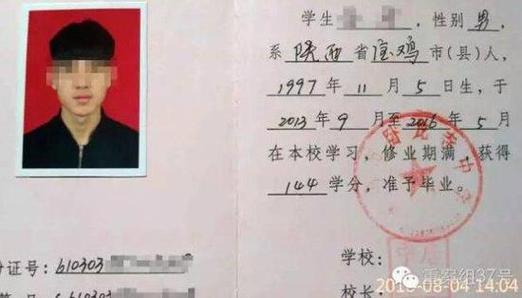 学生 性别 男,
系 陕西 省 宝鸡 市(县)人,
1997 年 11 月 5 日生, 于
2013 年 9 月至 2016 年 5 月
在本校学习, 修业期满, 获得
144 学分, 准予毕业。
证号: 610303
学校:
校长
重案组37号
2016-08-04 14:04